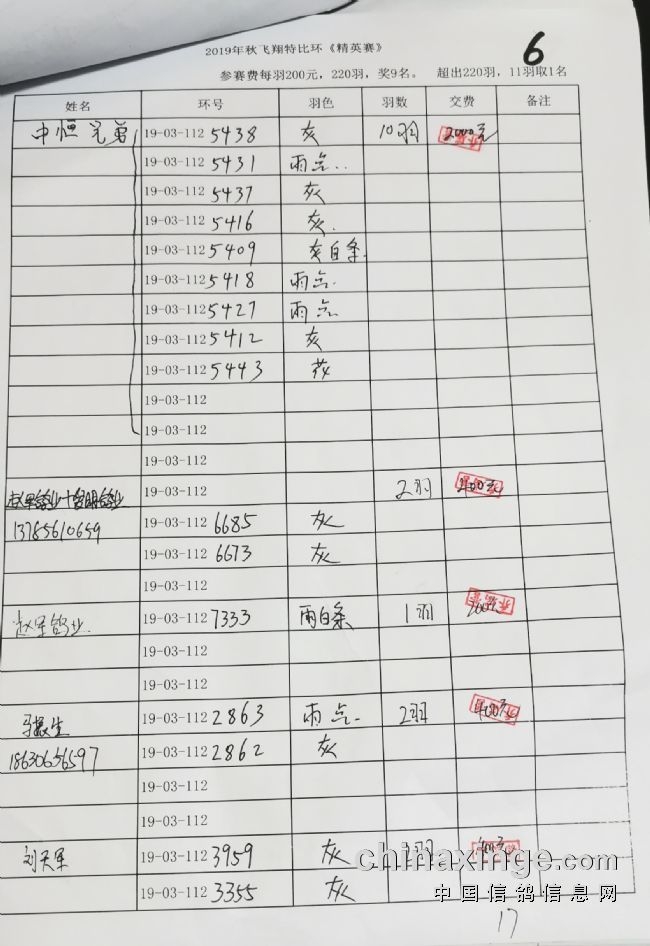 2019年秋飞翔特比环《精英赛》
6
参赛费每羽200元，220羽，奖9名。 超出220羽，11羽取1名
姓名 环号 羽色 羽数 交费 备注
中恒兄弟 19-03-112 5438 灰 10羽 2000元
19-03-112 5431 雨点
19-03-112 5437 灰
19-03-112 5416 灰
19-03-112 5409 灰白条
19-03-112 5418 雨点
19-03-112 5427 雨点
19-03-112 5412 灰
19-03-112 5443 花
19-03-112
19-03-112
19-03-112
19-03-112 2羽 400元
13785610659 19-03-112 6685 灰
19-03-112 6673 灰
19-03-112
赵军鸽业 19-03-112 7333 雨白条 1羽 200元
19-03-112
19-03-112
马振生 19-03-112 2863 雨点 2羽 400元
18630656597 19-03-112 2862 灰
19-03-112
19-03-112
刘天军 19-03-112 3959 灰
19-03-112 3355 灰
chinaxinge.com
中国信鸽信息网
17